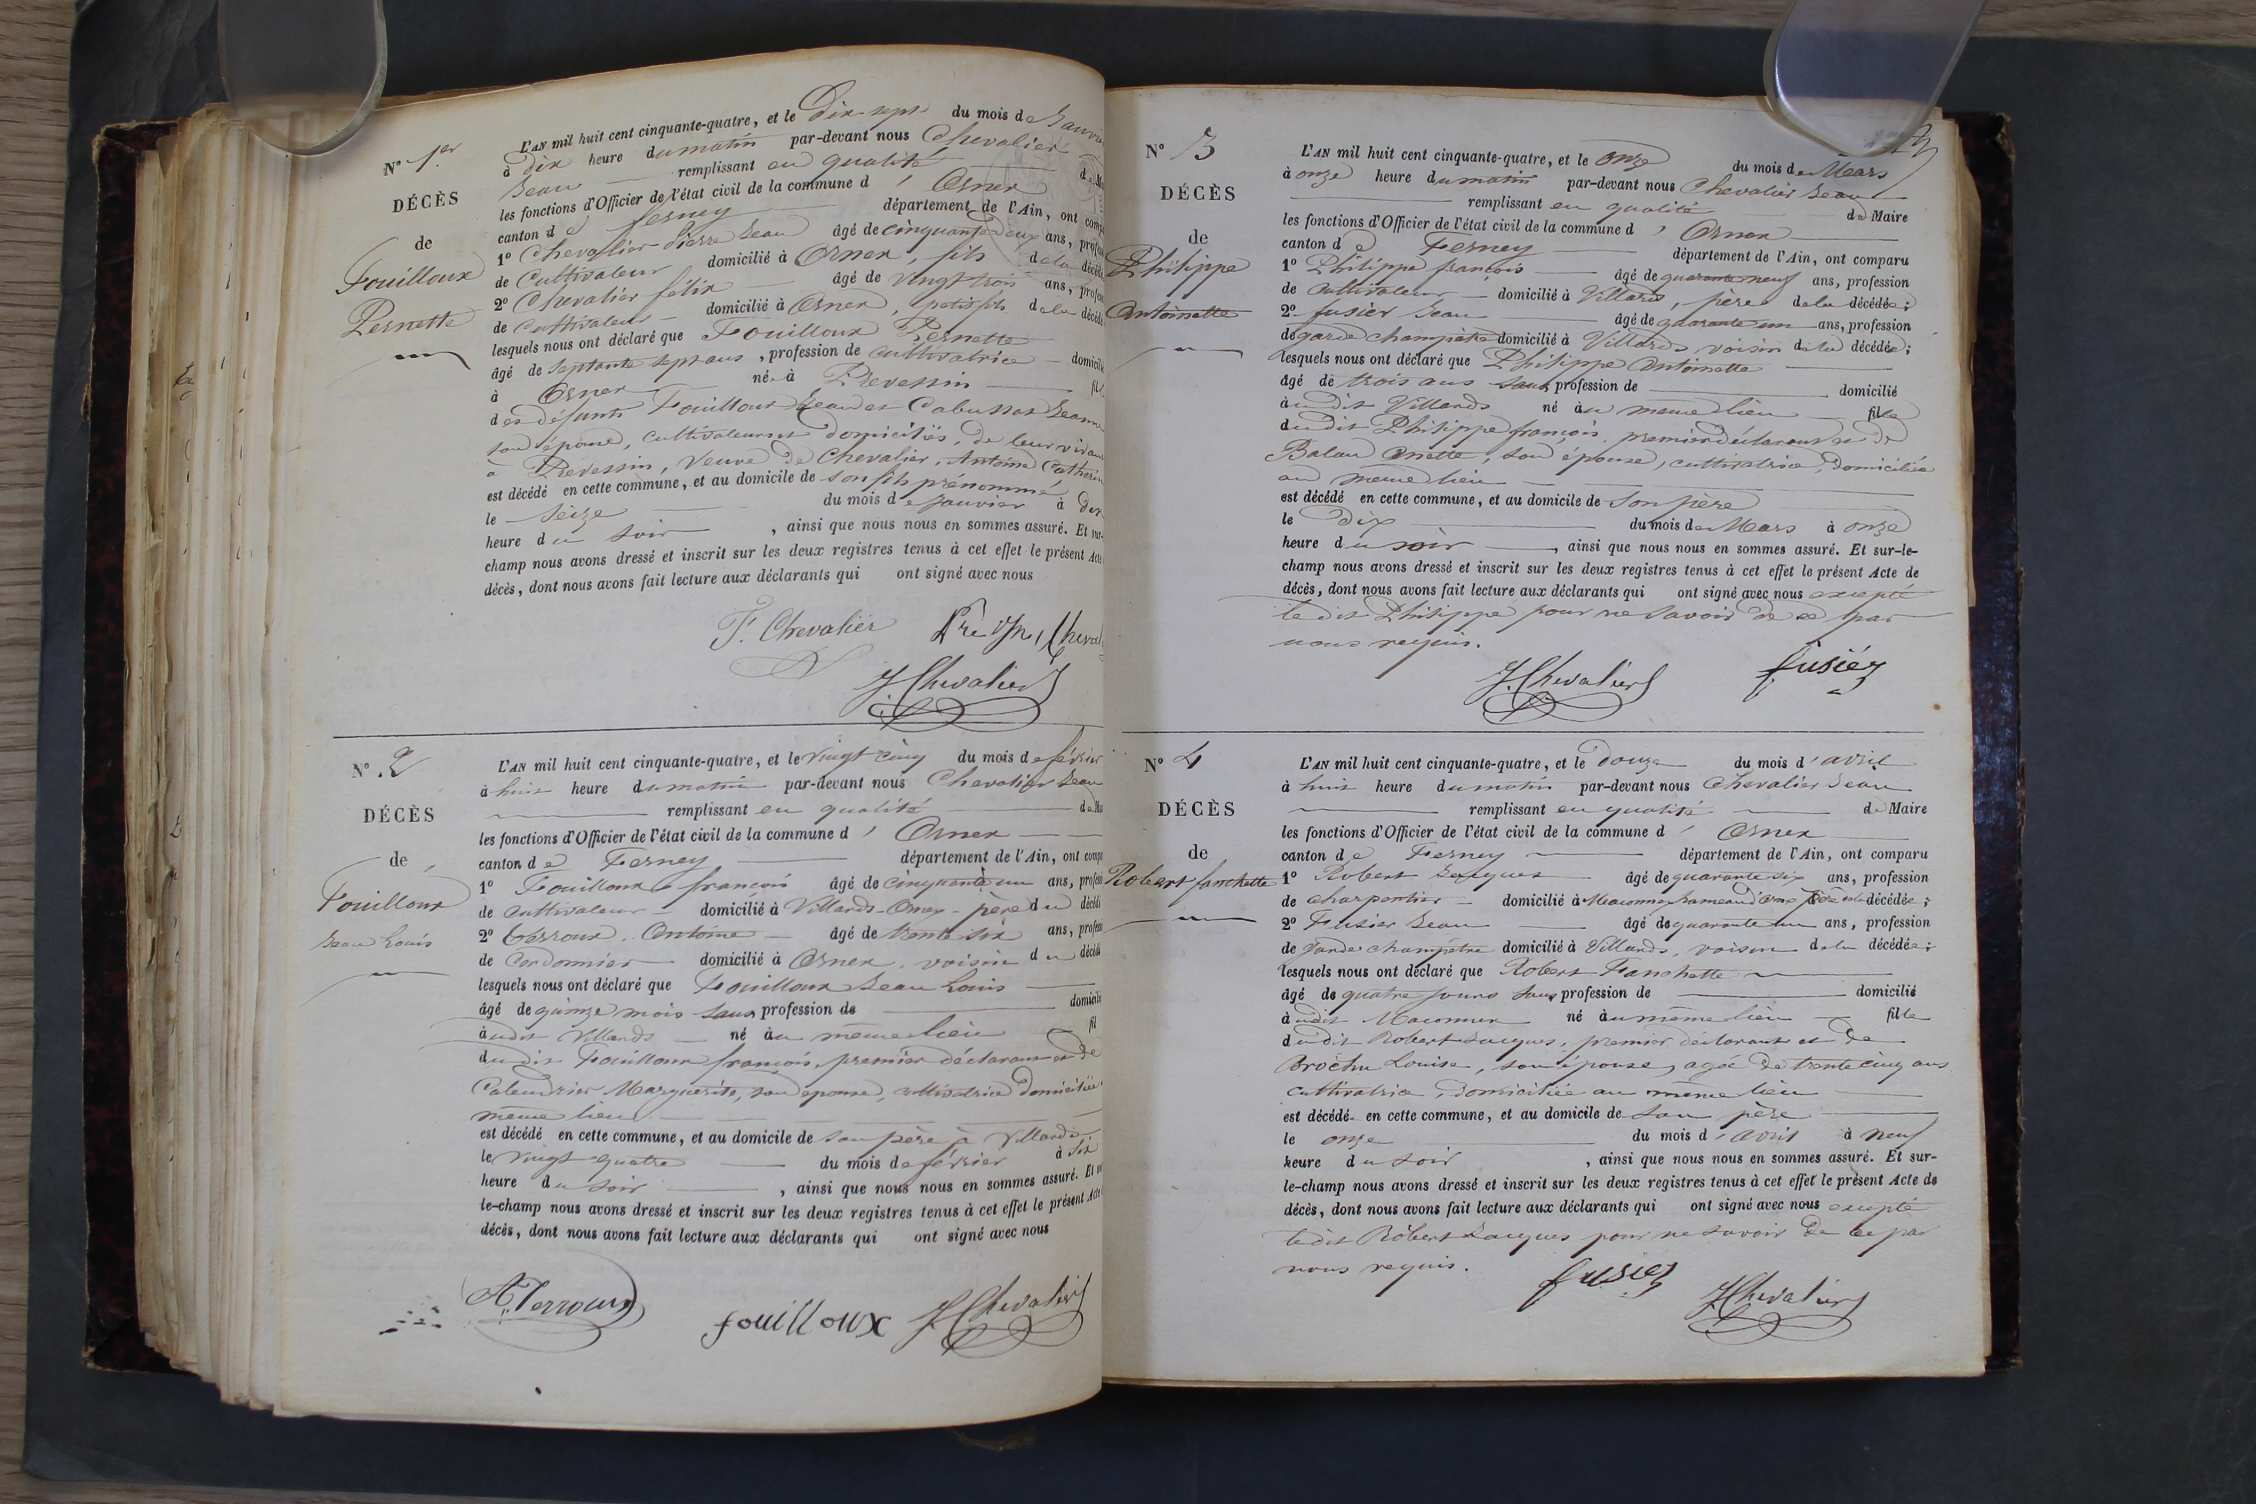 N° 1er
DÉCÈS
de
Fouilloux
Pernette
L'AN mil huit cent cinquante-quatre, et le Dix-sept du mois de Janvier
à dix heure du matin par-devant nous Chevalier
Jean remplissant en qualité de
les fonctions d'Officier de l'état civil de la commune d' Ornex
canton de ferney département de l'Ain, ont
1° Chevallier Pierre Jean âgé de cinquante deux ans,
de Cultivateur domicilié à Ornex, fils de la
2° Chevalier félix âgé de vingt trois ans,
de Cultivateur domicilié à Ornex, petit fils de la
lesquels nous ont déclaré que Fouilloux Pernette
âgé de septante sept ans, profession de cultivatrice
à Ornex née à Prevessin
des défunts Fouilloux Jean et Cabussat Jeanne
son épouse, cultivateurs domiciliés, de leur vivant
à Prevessin, veuve de Chevalier, Antoine
est décédé en cette commune, et au domicile de son fils prénommé
le seize du mois de janvier à dix
heure du soir, ainsi que nous nous en sommes assuré. Et sur-
champ nous avons dressé et inscrit sur les deux registres tenus à cet effet le présent Acte
décès, dont nous avons fait lecture aux déclarants qui ont signé avec nous
F. Chevalier
J. Chevalier
N° 2
DÉCÈS
de
Fouilloux
Jean Louis
L'AN mil huit cent cinquante-quatre, et le vingt cinq du mois de février
à huit heure du matin par-devant nous Chevalier Jean
remplissant en qualité de
les fonctions d'Officier de l'état civil de la commune d' Ornex
canton de Ferney département de l'Ain, ont
1° Fouilloux françois âgé de cinquante un ans,
de cultivateur domicilié à Villards-Ornex père du
2° Terroux Antoine âgé de trente six ans,
de Cordonnier domicilié à Ornex, voisin du
lesquels nous ont déclaré que Fouilloux Jean Louis
âgé de quinze mois sans profession de
audit Villards né au même lieu fil
dudit Fouilloux françois, premier déclarant et de
Calendrier Marguerite, son épouse, cultivatrice domiciliée
même lieu
est décédé en cette commune, et au domicile de son père à Villards
le vingt quatre du mois de février à six
heure du soir, ainsi que nous nous en sommes assuré. Et
le-champ nous avons dressé et inscrit sur les deux registres tenus à cet effet le présent Acte
décès, dont nous avons fait lecture aux déclarants qui ont signé avec nous
A. Terroux fouilloux J. Chevalier
N° 3
DÉCÈS
de
Philippe
Antoinette
L'AN mil huit cent cinquante-quatre, et le onze du mois de Mars
à onze heure du matin par-devant nous Chevalier Jean
remplissant en qualité de Maire
les fonctions d'Officier de l'état civil de la commune d' Ornex
canton de Ferney département de l'Ain, ont comparu
1° Philippe françois âgé de quarante neuf ans, profession
de cultivateur domicilié à Villards, père de la décédée;
2° fusier Jean âgé de quarante un ans, profession
de garde champêtre domicilié à Villards voisin de la décédée;
lesquels nous ont déclaré que Philippe Antoinette
âgé de trois ans sans profession de domicilié
audit Villards né au même lieu fille
dudit Philippe françois, premier déclarant et de
Balan, son épouse, cultivatrice, domiciliée
au même lieu
est décédé en cette commune, et au domicile de son père
le dix du mois de Mars à onze
heure du soir, ainsi que nous nous en sommes assuré. Et sur-le-
champ nous avons dressé et inscrit sur les deux registres tenus à cet effet le présent Acte de
décès, dont nous avons fait lecture aux déclarants qui ont signé avec nous excepté
le dit Philippe pour ne savoir de ce par
nous requis.
J. Chevalier fusiér
N° 4
DÉCÈS
de
Robert fanchette
L'AN mil huit cent cinquante-quatre, et le douze du mois d'avril
à huit heure du matin par-devant nous Chevalier Jean
remplissant en qualité de Maire
les fonctions d'Officier de l'état civil de la commune d' Ornex
canton de Ferney département de l'Ain, ont comparu
1° Robert Jacques âgé de quarante six ans, profession
de charpentier domicilié à Maconnex hameau d'Ornex père de la décédée;
2° Fusier Jean âgé de quarante un ans, profession
de garde champêtre domicilié à Villards, voisin de la décédée;
lesquels nous ont déclaré que Robert Fanchette
âgé de quatre jours sans profession de domicilié
audit Maconnex né au même lieu fille
dudit Robert Jacques, premier déclarant et de
Brochu Louise, son épouse, agée de trente cinq ans
cultivatrice, domiciliée au même lieu
est décédé en cette commune, et au domicile de son père
le onze du mois d'avril à neuf
heure du soir, ainsi que nous nous en sommes assuré. Et sur-
le-champ nous avons dressé et inscrit sur les deux registres tenus à cet effet le présent Acte de
décès, dont nous avons fait lecture aux déclarants qui ont signé avec nous excepté
le dit Robert Jacques pour ne savoir de ce par
nous requis.
fusiér J. Chevalier